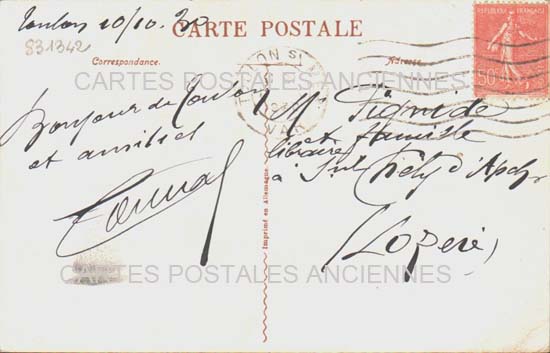 Toulon 10/10.30
831342
CARTE POSTALE
Correspondance.
Adresse.
REPUBLIQUE FRANÇAISE
50
TOULON
VAR
CARTES POSTALES ANCIENNES
Bonjour de Toulon
et amitiés
Mr
et famille
libraire
à St Chély d'Apcher
(Lozère)
Imprimé en Allemagne
CARTES POSTALES ANCIENNES